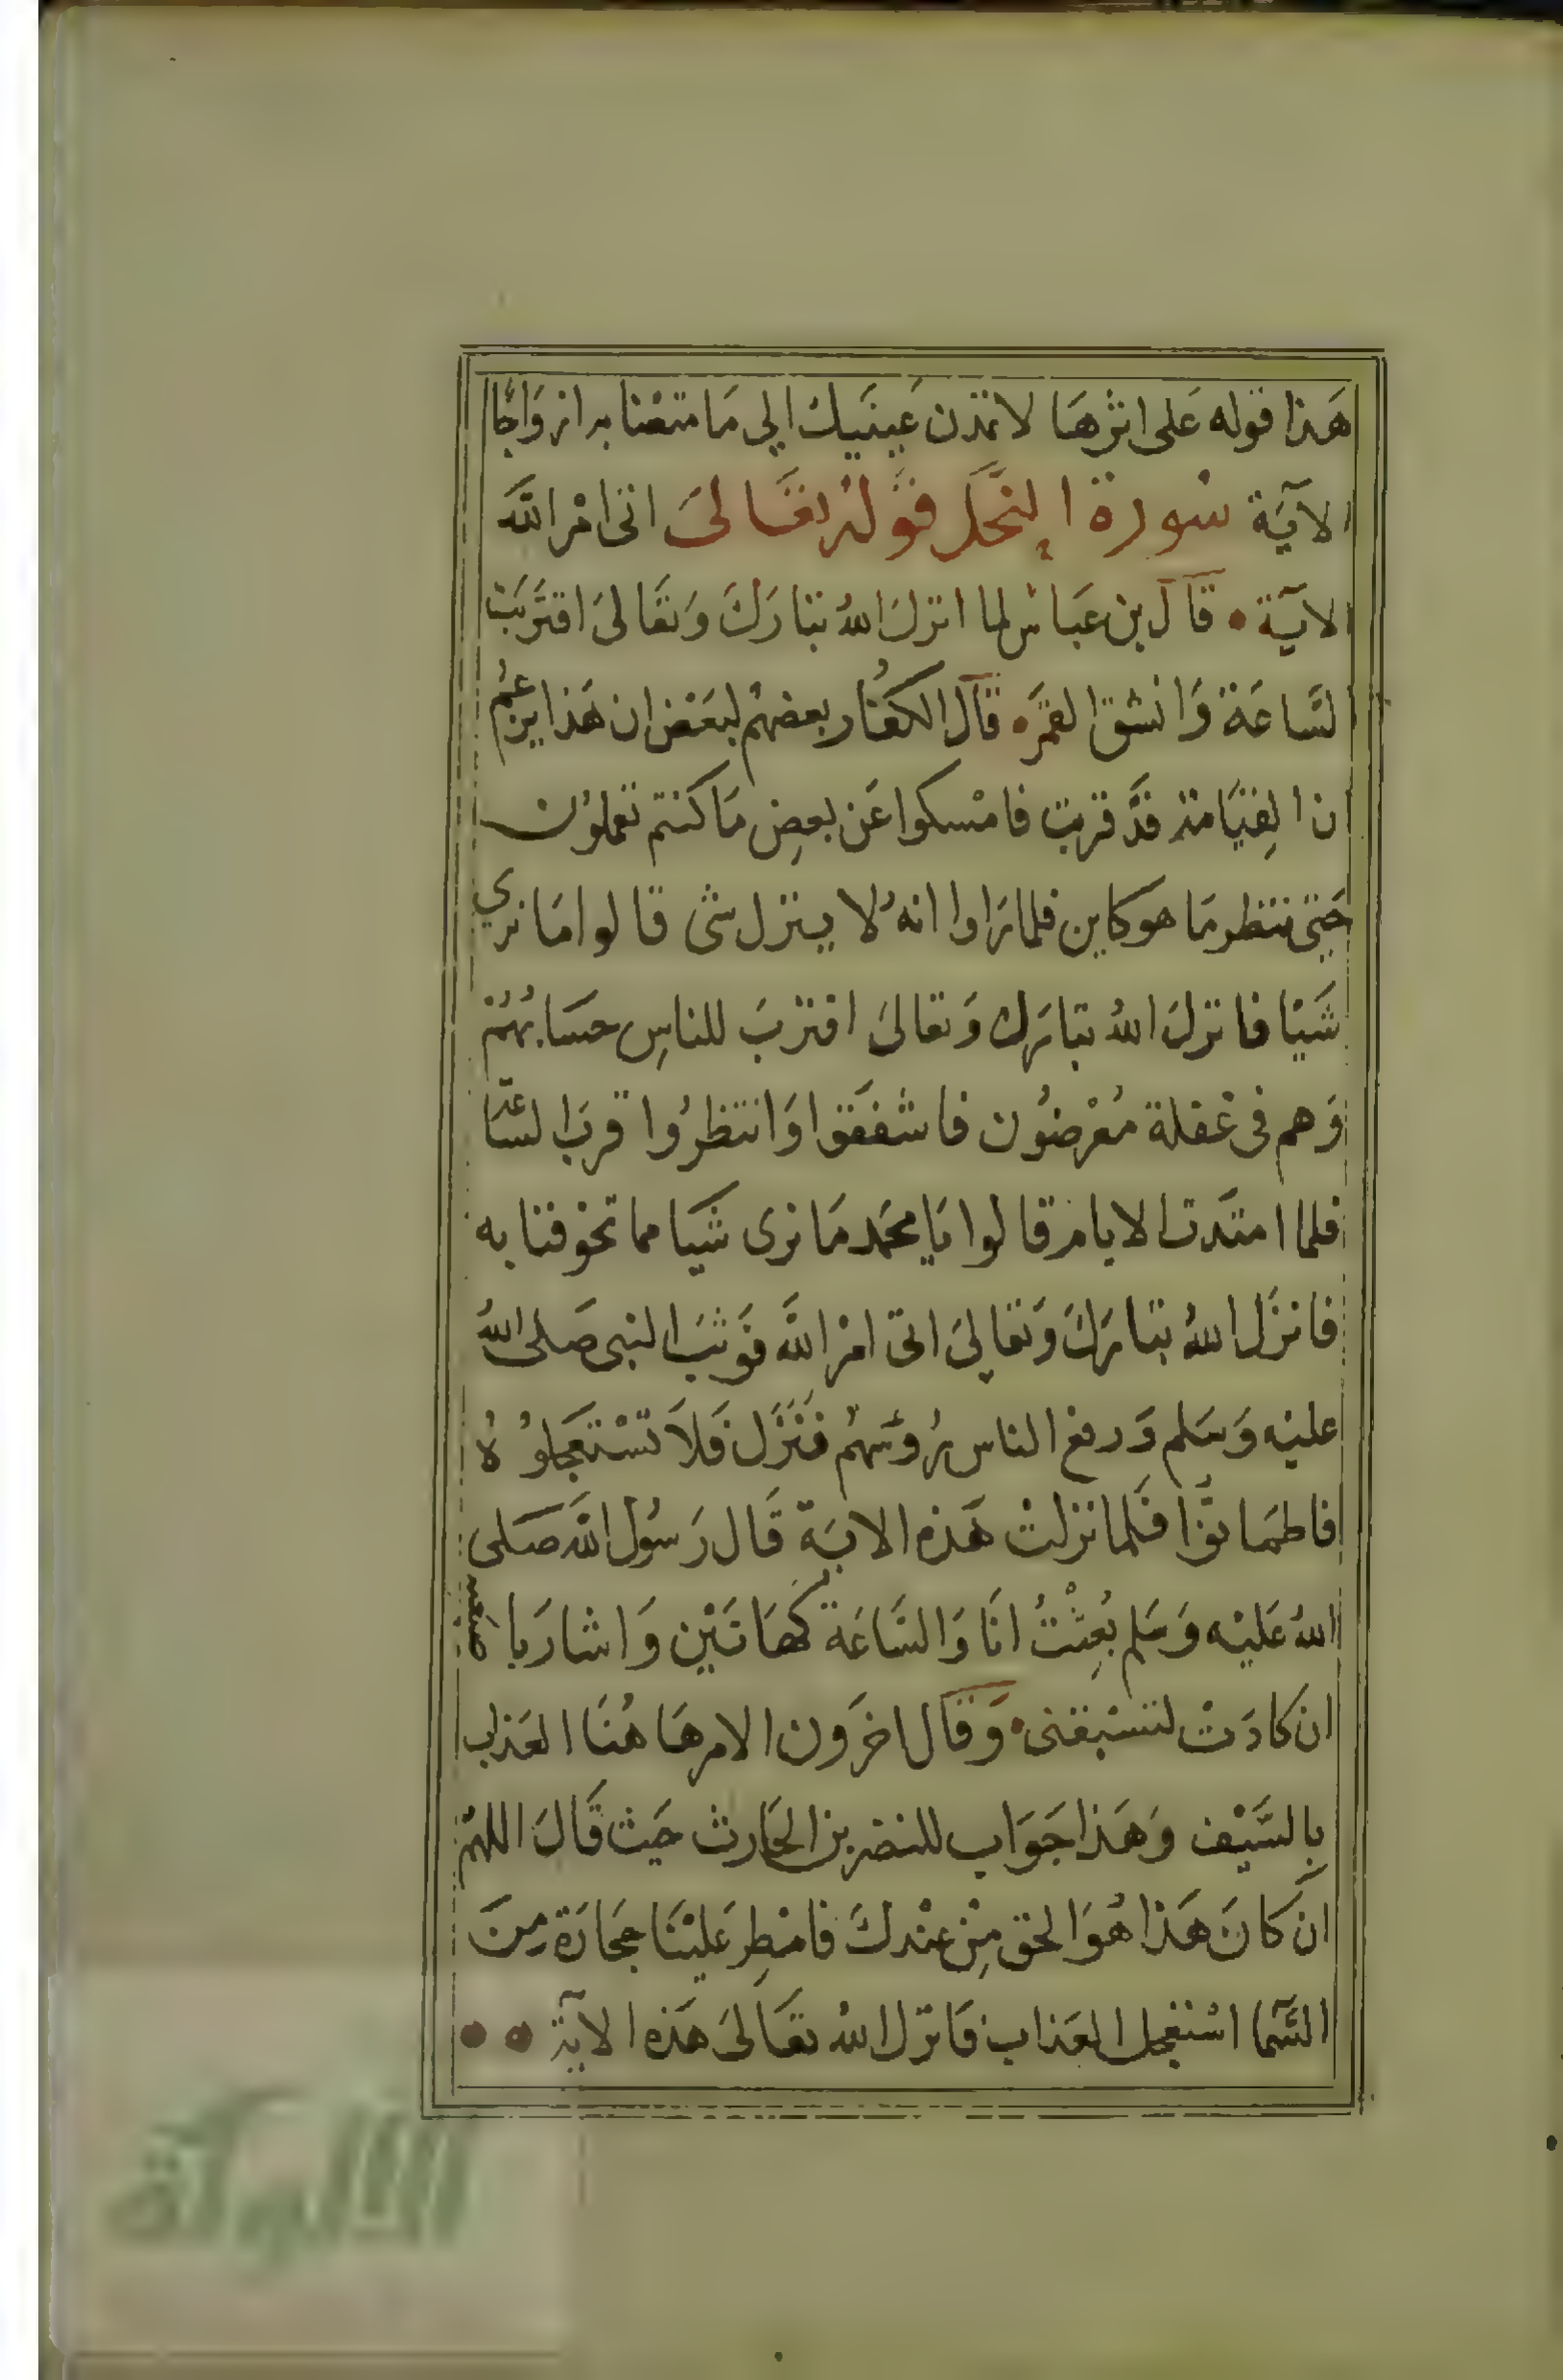 هَذا قوله عَلى اثرهَا لا تمدن عَينيك الي مَا متعنا به ازوَاجًا
الآيَة سُورة النحَل قوله تعَالىَ اتى امْرالله
الآيَة • قال بن عَباس لما انزلَ اللهُ تبارَكَ وَتعَالىَ اقترَبَت
لسَّاعَة وَانشق القمَر • قال الكفَار بعضهُم لبعَض ان هَذا يزعُم
ان القِيَامة قدَّ قربت فامْسكوا عَن بعضِ مَا كنتم تعملوُن
حَتى ننتظر مَا هو كاين فلما رَاوا انهُ لا ينزل شى قالوا مَا نري
شَيْا فانزلَ اللهُ تبارَك وَتعالىَ اقتربَ للناسِ حسَابُهُمْ
وَهم فى غفلة مُعْرضُون فاشفقَوا وَانتظرُوا قربَ لسَّاعَة
فلما امتدَت الايام قالوا يَا محمَد مَا نرى شَيَا مما تخوفنا به
فانزَل اللهُ تبارَكَ وَتعَاليَ اتى امْرالله فوَثبَ النبى صَلى اللهُ
عليْه وَسَلم وَرفع الناس رُوسَهُم فَنَزَل فَلاَ تسْتعَجلوُهُ
فاطمَانوُّا فلَما نزلتْ هَذه الايَة قَال رَسُول الله صَلى
اللهُ عَليْه وَسَلم بُعِثْتُ انَا وَالسَّاعَة كَهَاتَيْن وَاشارَ باصبعيه
ان كادَتْ لتسْبقنى • وَقال اخرَون الامر هَاهُنَا العَذاب
بِالسَّيْف وَهَذا جَوَاب للنضر بن الحَارث حَيث قَالَ اللهُم
انِ كانَ هَذا هُوَ الحق مِنْ عنْدكَ فامْطِر عَليْنَا حجَارَة مِنَ
السَّمآ اسْتعْجل العَذاب فَانزل اللهُ تعَالىَ هَذه الآيَة • •
الألوكة